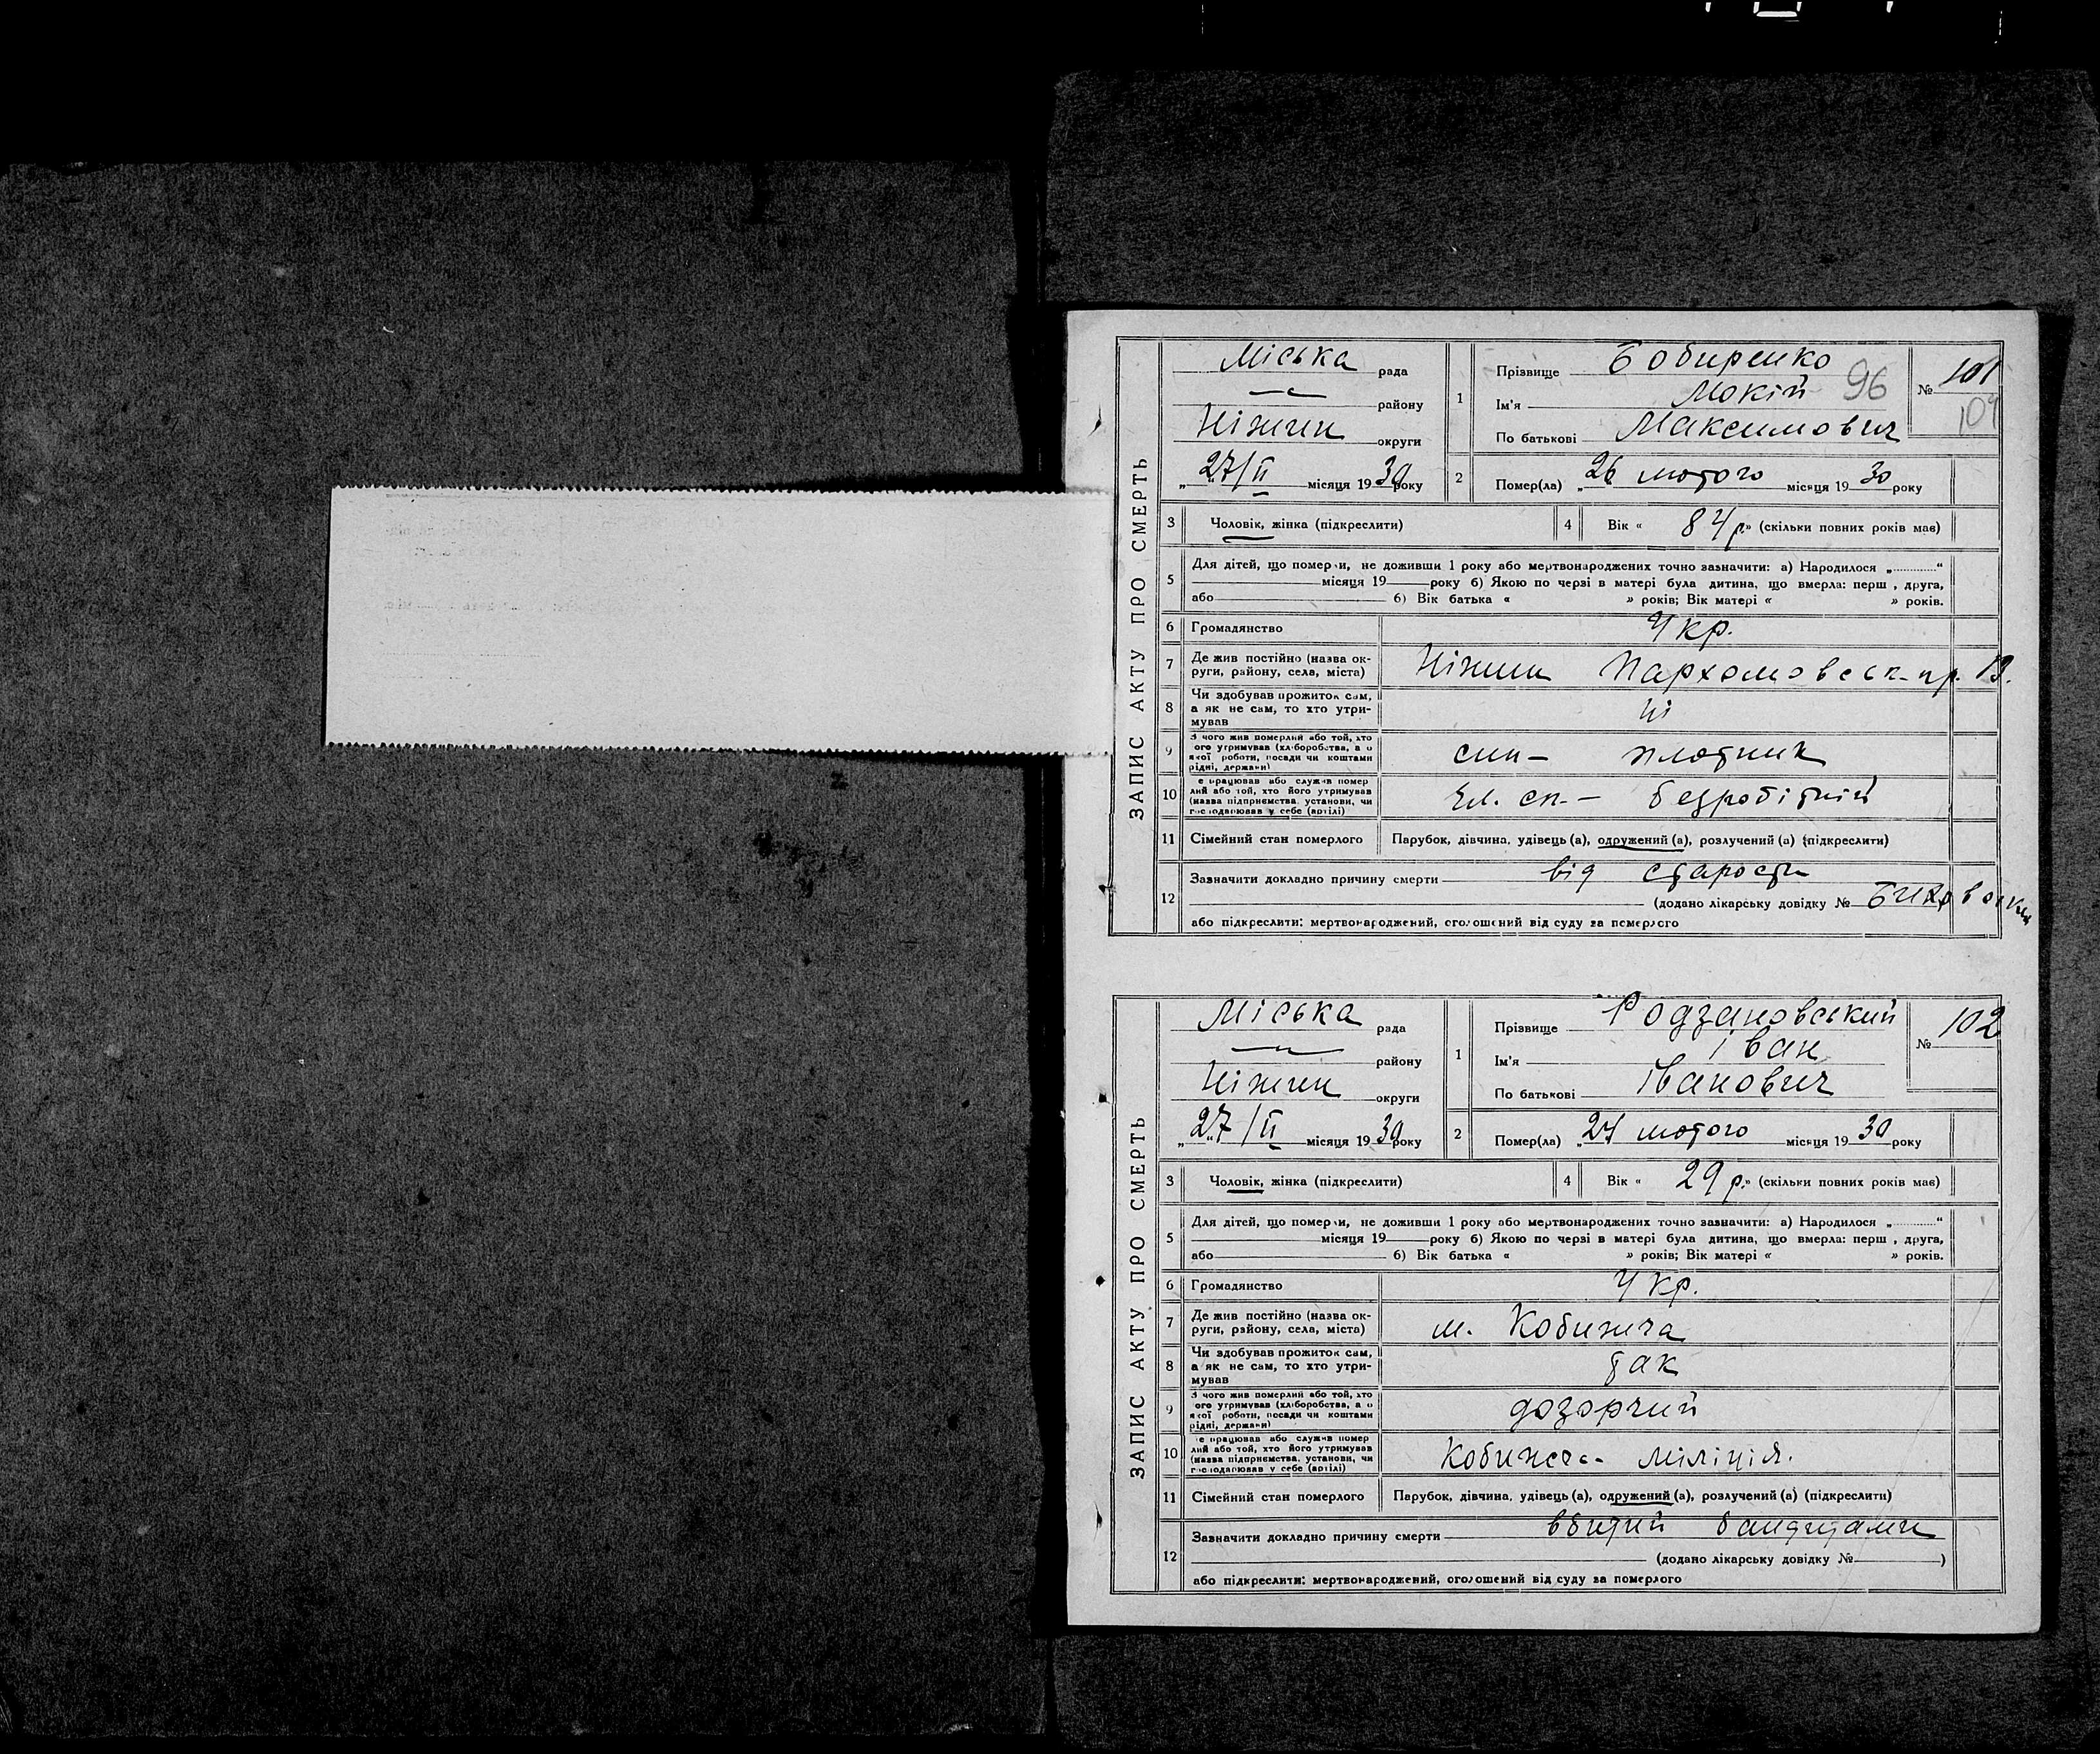 ЗАПИС АКТУ ПРО СМЕРТЬ
Міська рада
району
Ніжин округи
„27/II місяця 1930 року
1 Прізвище Бобиренко
Ім'я Мокій 96
По батькові Максимович
№ 101
2 Помер(ла) „26 лютого місяця 1930 року
3 Чоловік, жінка (підкреслити) 4 Вік « 84 р.» (скільки повних років мав)
5 Для дітей, що померли, не доживши 1 року або мертвонароджених точно зазначити: а) Народилося „ “
місяця 19 року б) Якою по черзі в матері була дитина, що вмерла: перш , друга,
або б) Вік батька « » років; Вік матері « » років.
6 Громадянство Укр.
7 Де жив постійно (назва ок-
руги, району, села, міста) Ніжин Пархомовськ. пр. 13.
8 Чи здобував прожиток сам,
а як не сам, то хто утри-
мував Ні
9 З чого жив померлий або той, хто
ого утримував (хліборобства, а о
якої роботи, посади чи коштами
рідні, держави) син - плотник
10 е працював або служив помер
лий або той, хто його утримував
(назва підприємства, установи, чи
господарював у себе (артілі) Чл. сп. - безробітній
11 Сімейний стан померлого Парубок, дівчина, удівець (а), одружений (а), розлучений (а) (підкреслити)
12 Зазначити докладно причину смерти від старости
(додано лікарську довідку №
або підкреслити: мертвонароджений, оголошений від суду за померлого
ЗАПИС АКТУ ПРО СМЕРТЬ
Міська рада
району
Ніжин округи
„27/II місяця 1930 року
1 Прізвище Родзановський
Ім'я Іван
По батькові Іванович
№ 102
2 Помер(ла) „24 лютого місяця 1930 року
3 Чоловік, жінка (підкреслити) 4 Вік « 29 р.» (скільки повних років мав)
5 Для дітей, що померли, не доживши 1 року або мертвонароджених точно зазначити: а) Народилося „ “
місяця 19 року б) Якою по черзі в матері була дитина, що вмерла: перш , друга,
або б) Вік батька « » років; Вік матері « » років.
6 Громадянство Укр.
7 Де жив постійно (назва ок-
руги, району, села, міста) м. Кобижча
8 Чи здобував прожиток сам,
а як не сам, то хто утри-
мував так
9 З чого жив померлий або той, хто
ого утримував (хліборобства, а о
якої роботи, посади чи коштами
рідні, держави) дозорчий
10 е працював або служив помер
лий або той, хто його утримував
(назва підприємства, установи, чи
господарював у себе (артілі) міліція.
11 Сімейний стан померлого Парубок, дівчина, удівець (а), одружений (а), розлучений (а) (підкреслити)
12 Зазначити докладно причину смерти вбитий бандитами
(додано лікарську довідку № )
або підкреслити: мертвонароджений, оголошений від суду за померлого